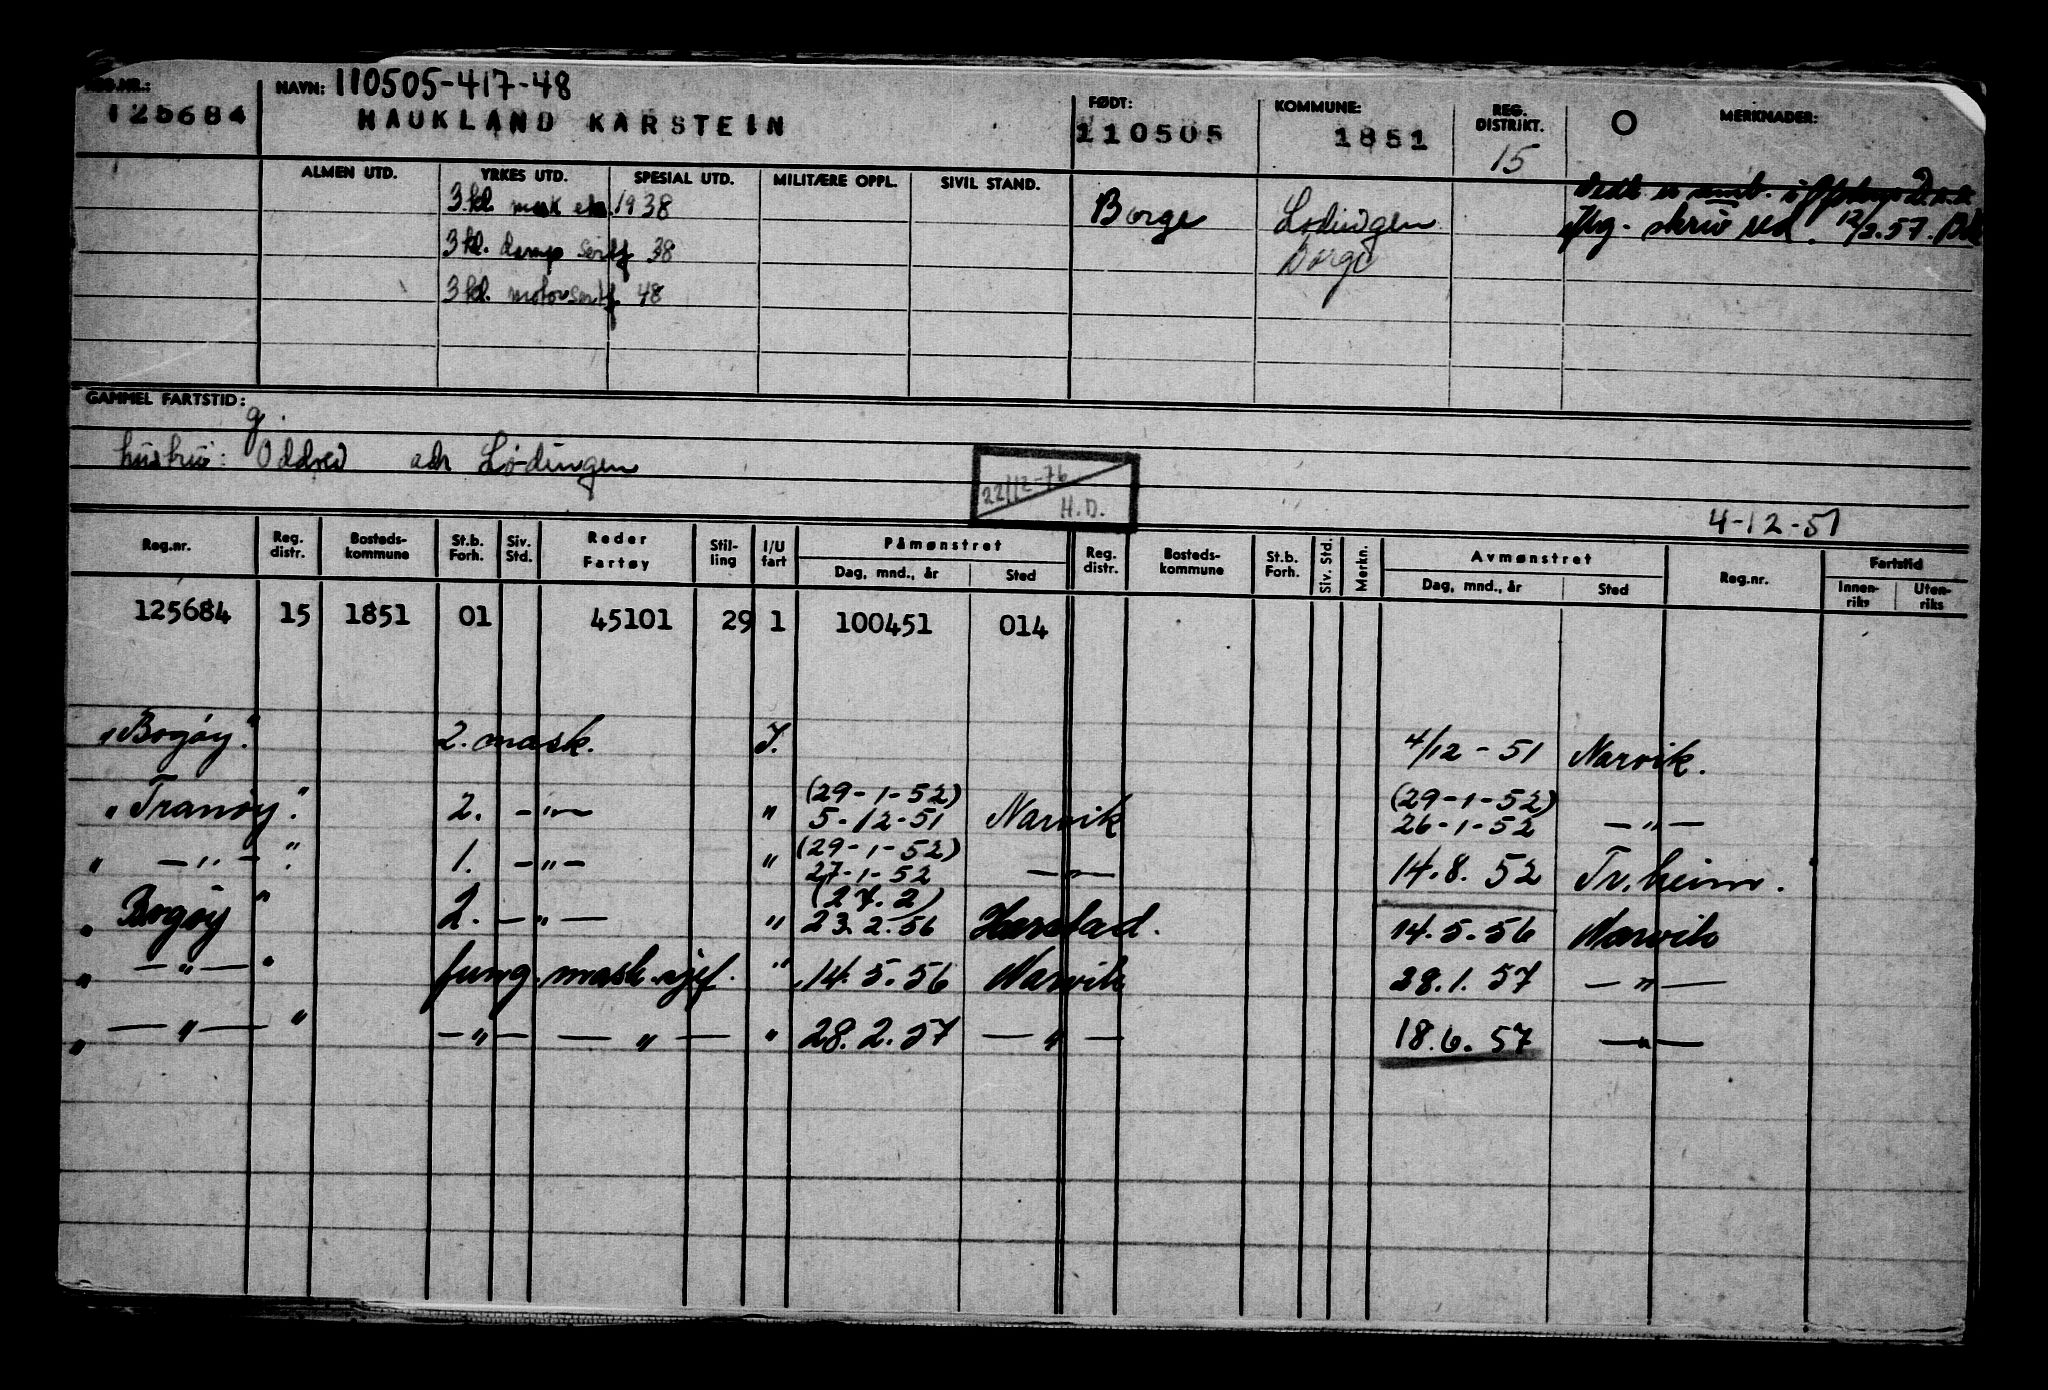 REG.NR.: NAVN: 110505-417-48 FØDT: KOMMUNE: REG. DISTRIKT. MERKNADER:
125684 HAUKLAND KARSTEIN 110505 1851 15
ALMEN UTD. YRKES UTD. SPESIAL UTD. MILITÆRE OPPL. SIVIL STAND.
3.kl. mask eks. 1938 Borge Lødingen skriv ved. 12/3.57.
3 kl. damp sertf 38 Borge
3 kl. motorsertf. 48
GAMMEL FARTSTID:
g.
hustru: Oddveig adr Lødingen
22/12-76
H.D.
4-12-51
Reg.nr. Reg. distr. Bosteds-kommune St.b. Forh. Siv. Std. Reder Fartøy Stil-ling I/U fart Påmønstret Reg. distr. Bosteds-kommune St.b. Forh. Siv. Std. Merkn. Avmønstret Reg.nr. Fartstid
Dag, mnd., år Sted Dag, mnd., år Sted Innen-riks Uten-riks
125684 15 1851 01 45101 29 1 100451 014
"Bogøy." 2. mask. I. 4/12-51 Narvik.
(29-1-52) (29-1-52)
"Tranøy". 2. —"— " 5-12-51 Narvik 26-1-52 —"—
(29-1-52)
" —"— ". 1. —"— " 27-1-52 —"— 14.8.52 Tr.heim.
(27.2)
"Bogøy" 2. —"— " 23.2.56 Harstad. 14.5.56 Narvik
" —"— " fung. mask.sjef. " 14.5.56 Narvik 28.1.57 —"—
" —"— " —"— —"— " 28.2.57 —"— 18.6.57 —"—